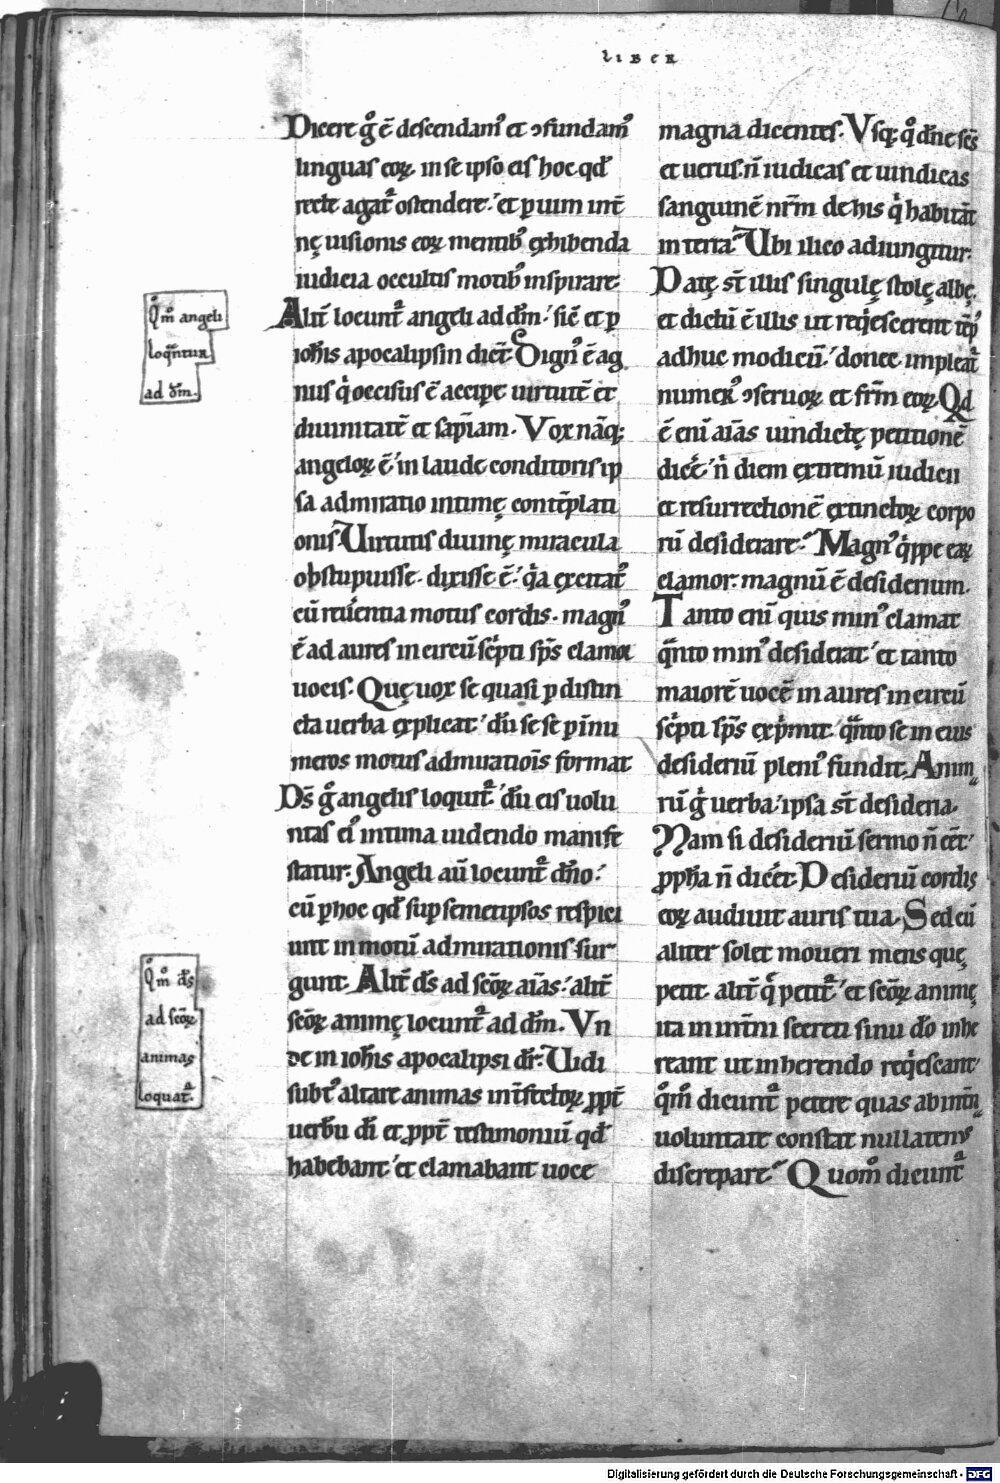 LIBER
Dicere g̊ ē descendam᷒ et ꝯfundam᷒
linguas eoꝝ. in se ipso eis hoc qd̄
recte agat᷑ ostendere. et ꝑ uim int̄
nę uisionis eoꝝ mentib᷒ exhibenda
iudicia occultis motib᷒ inspirare.
Alit̄ locunt᷑ angeli ad dn̄m. sic̄ et ꝑ
ioh̄is apocalipsin dict̄. Dign᷒ ē ag
nus qͥ occisus ē accipe uirtutē et
diuinitatē et sapiam̄. Vox nāq;
angeloꝝ ē in laude conditoris ip
sa admiratio intimę contēplati
onis. Uirtutis diuinę miracula
obstupuisse. dixisse ē. qͥa excitat᷑
cū reuerentia motus cordis. magn᷒
ē ad aures incircū scͥpti sp̄s clamor
uocis. Quę uox se quasi ꝑ distin
cta uerba explicat. dū se se ꝑ innu
meros motus admiratiois̄ format
Ds̄ g̊ angelis loquit᷑. dū eis uolu
ntas ei᷒ intima uidendo manife
statur. Angeli aū locunt᷑ dn̄o.
cū ꝑ hoc qd̄ sup semetipsos respici
unt in motū admirationis sur
gunt. Alit̄ ds̄ ad sc̄oꝝ aias̄. alit̄
sc̄oꝝ animę locunt᷑ ad dn̄m. Vn
de in ioh̄is apocalipsi dr̄. Uidi
subt᷒ altare animas int̄fectoꝝ ꝓpt̄
uerbū dī et ꝓpt̄ testimoniū qd̄
habebant. et clamabant uoce
Qͦm̊ angeli
loqͣntur
ad dn̄m.
Qͦm̊ ds̄
ad sc̄oꝝ
animas
loquat᷑.
magna dicentes. Vsq; qͦ dn̄e sc̄s
et uerus. n̄ iudicas et uindicas
sanguinē nr̄m de his qͥ habitāt
in terra. Ubi ilico adiungitur.
Datę st̄ illis singulę stolę albę.
et dictū ē illis ut reqͥescerent tēp᷒
adhuc modicū. donec impleat᷑
numer᷒ ꝯseruoꝝ et fr̄m eoꝝ. Qd̄
ē enī aiās uindictę petitionē
dicere. nͥ diem extremū iudicii
et resurrectionē extinctoꝝ corpo
rū desiderare. Magn᷒ qͥppe eaꝝ
clamor. magnū ē desiderium.
Tanto enī quis min᷒ clamat
qͣnto min᷒ desiderat. et tanto
maiorē uocē in aures incircū
scͥpti sp̄s expͥmit. qͣnto se in eius
desideriū pleni᷒ fundit. Anim
rū gͥ uerba. ipsa st̄ desideria.
Nam si desideriū sermo n̄ eēt.
ꝓph̄a n̄ diceret. Desideriū cordis
eoꝝ audiuit auris tua. Sed cū
aliter solet moueri mens quę
petit. alit̄ qͥ petit᷑. et sc̄oꝝ animę
ita in int̄ni secreti sinu dō inhe
reant ut inherendo reqͥescant.
qͦm̊ dicunt᷑ petere quas ab int̄n
uoluntate constat nullaten᷒
discrepare. Quom̊ dicunt᷑
Digitalisierung gefördert durch die Deutsche Forschungsgemeinschaft - DFG